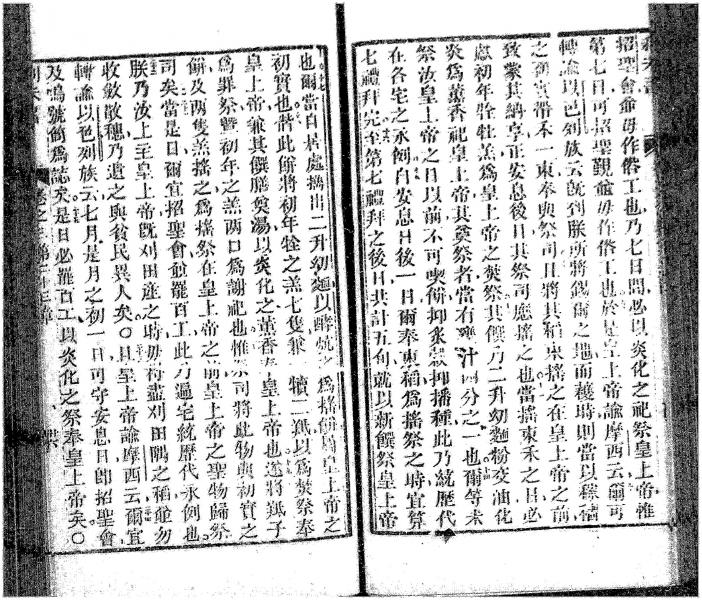 招聖會爺毋作俗工也乃七日間必以炎化之祀祭皇上帝惟
第七日可招聖覲爺毋作俗工也於是皇上帝諭摩西云爾可
轉諭以色列族云既到朕所將錫爾之地而穫時則當以稼穡
之初實帶禾一束奉與祭司且將其稻束搖之在皇上帝之前
致蒙其納享正安息後日其祭司應搖之也當搖束禾之日必
慮初年牷牡羔爲皇上帝之焚祭其饌乃二升幼麵粉交油化
炎爲薰香祀皇上帝其奠祭者當有 汁四分之一也爾等未
祭汝皇上帝之日以前不可喫餅抑炙穀抑播種此乃統歷代
在各宅之永例自安息日後一日爾奉束稻爲搖祭之時宜算
七禮拜完至第七禮拜之後日共計五旬就以新饌祭皇上帝
也爾當自若處攜出二升幼麵以酵 之爲搖餅爲皇上帝之
初實也偕此餅將初年牷之羔七隻兼犢二羝以爲焚祭奉
皇上帝兼其饌膳奠湯以炎化之薰香 皇上帝也遂將羝子
爲罪祭暨初年之羔兩口爲謝祀也惟祭司將此物與初實之
餅及兩隻羔搖之爲搖祭在皇上帝之前皇上帝之聖物歸祭
司矣當是日爾宜招聖會爺罷百工此乃遍宅統歷代永例也
朕乃汝上主皇上帝既刈田遊之時毋得盡刈田隅之稻並勿
收斂散穗乃遺之與貧民異人矣〇且皇上帝諭摩西云爾宜
轉諭以色列族云七月是月之初一日可守安息日即招聖會
及鳴號筒爲誌矣是日必罷百工以炎化之祭奉皇上帝矣〇